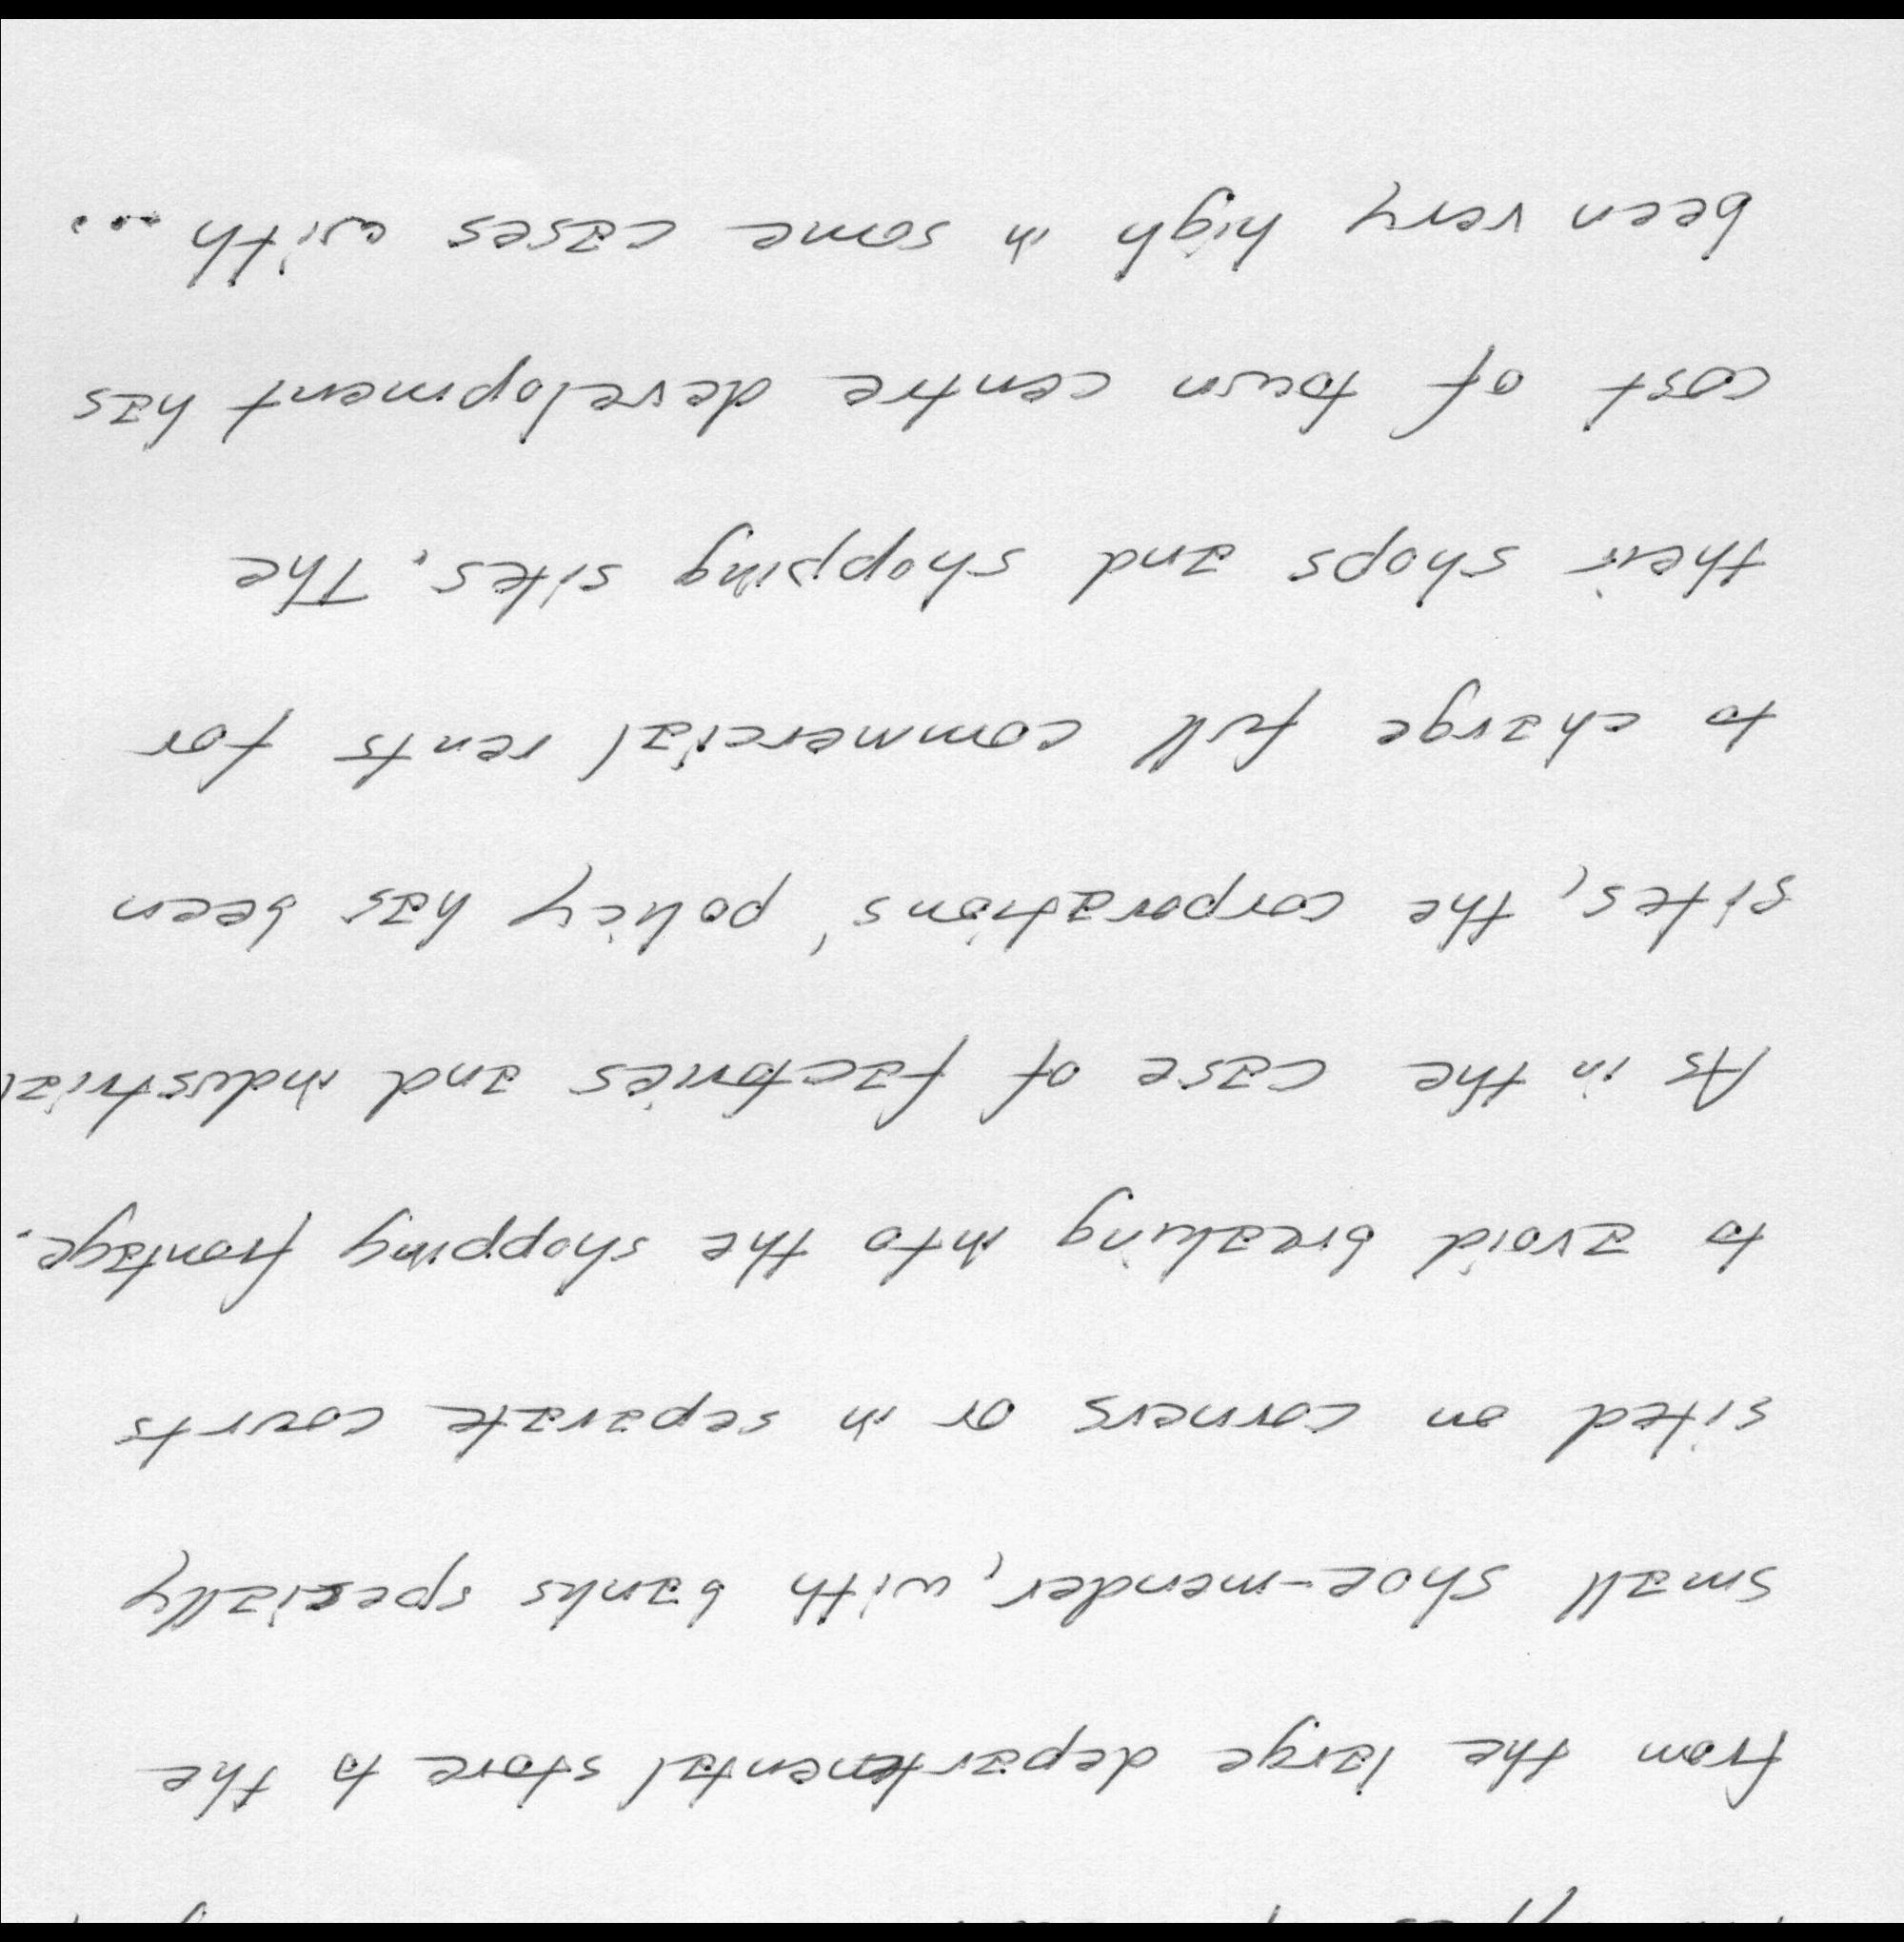 from the large departmental store to the
small shoe-mender, with banks specially
sited on corners or in separate courts
to avoid breaking into the shopping frontage.
As in the case of factories and industrial
sites, the corporations' policy has been
to charge full commercial rents for
their shops and shopping sites. The
cost of town centre development has
been very high in some cases with ...